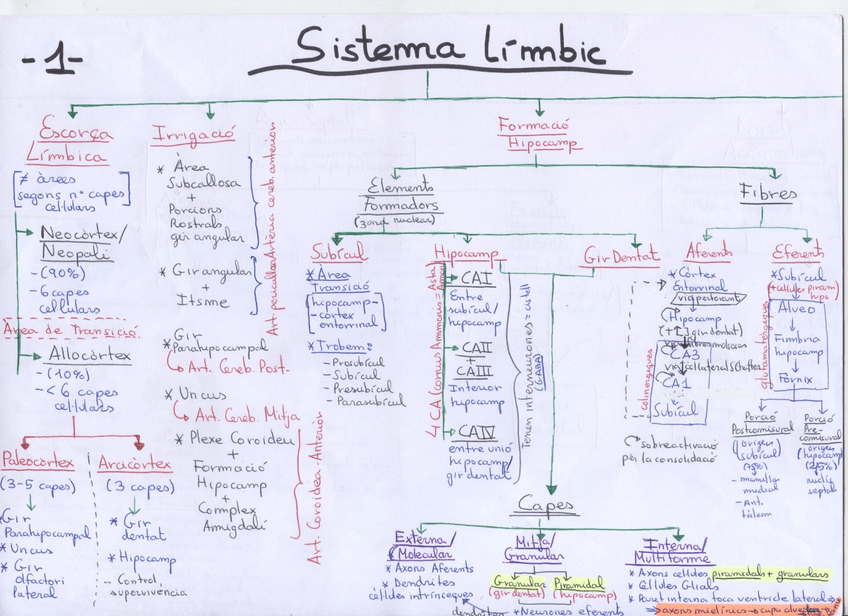 -1-
Sistema Límbic
Escorça
Límbica
[≠ àrees
segons nº capes
cellulars]
Neocòrtex/
Neopali
-(90%)
-6 capes
cellulars
Área de Transició
Allocòrtex
-(10%)
-< 6 capes
cellulars
Paleocòrtex
(3-5 capes)
* Gir
Parahipocampal
* Uncus
* Gir
olfactori
lateral
Arcicòrtex
(3 capes)
* Gir
dentat
* Hipocamp
- Control
supervivencia
Irrigació
* Àrea
Subcallosa
+
Porcions
Rostrals
gir angular
* Gir angular
+
Itsme
Art. pericallosa Artèria cereb. anterior
* Gir
Parahipocampal
Art. Cereb. Post.
* Uncus
Art. Cereb. Mitja
* Plexe Coroideu
+
Formació
Hipocamp
+
Complex
Amigdalí
Art. Coroidea-Anterior
Formació
Hipocamp
Elements
Formadors
(zona nuclear)
Subícul
* Àrea
Transició
[hipocamp-
-còrtex
entorrinal]
* Trobem:
- Prosubícul
- Subícul
- Presubícul
- Parasubícul
Hipocamp
4 CA (cornus Ammonis =
CAI
Entre
subícul/
hipocamp
CAII
+
CAIII
Interior
hipocamp
CAIV
entre unió
hipocamp/
gir dentat
Tenen interneurones = cistell
(GABA)
Gir Dentat
Capes
Externa/
Molecular
* Axons Aferents
* Dendrites
cèllules intrínseques
Mitja/
Granular
Granular
(gir dentat)
Piramidal
(hipocamp)
dendrites
* Neurones eferents
Interna/
Multiforme
* Axons cèllules piramidals + granulars
* Cèllules Glials
* Paret interna toca ventricle lateral
axons mielínics → capa
Fibres
Aferents
* Còrtex
Entorrinal
via perforant
Hipocamp
(+ gir dentat)
CA3
via collateral Schaffer
CA1
Subícul
colinèrgiques
sobreactivació
per la consolidació
Eferents
* Subícul
(+ cèllules piram
hipo
Alveo
Fimbria
hipocamp
Fòrnix
glutamatèrgiques
Porció
Postcomisural
(origen
subícul)
(75%)
- mamilla
medial
- Ant.
tàlem
Porció
Pre-
comisural
(origen
hipocamp)
(25%)
- nuclis
septals